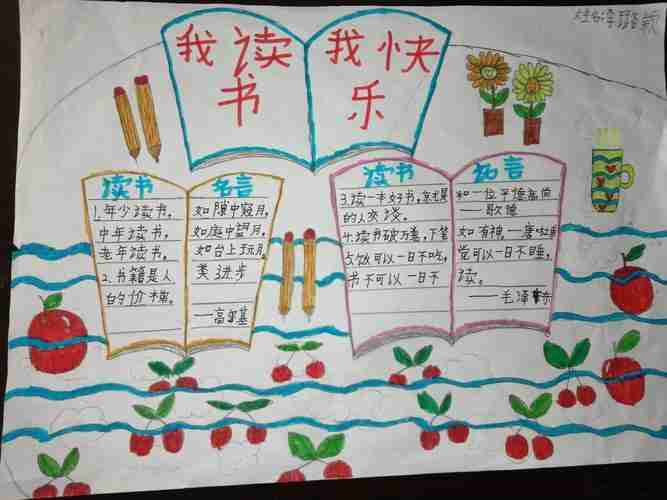 姓名
我读书
我快乐
读书 名言
1.年少读书,如隙中窥月,
中年读书,如庭中望月,
老年读书,如台上玩月,
2.书籍是人类进步
的价梯。
——高尔基
读书 名言
3.读一本好书,就是和一位品德高尚
的人交谈。——歌德
4.读书破万卷,下笔如有神,——唐杜甫
5.饭可以一日不吃,觉可以一日不睡,
书不可以一日不读。
——毛泽东